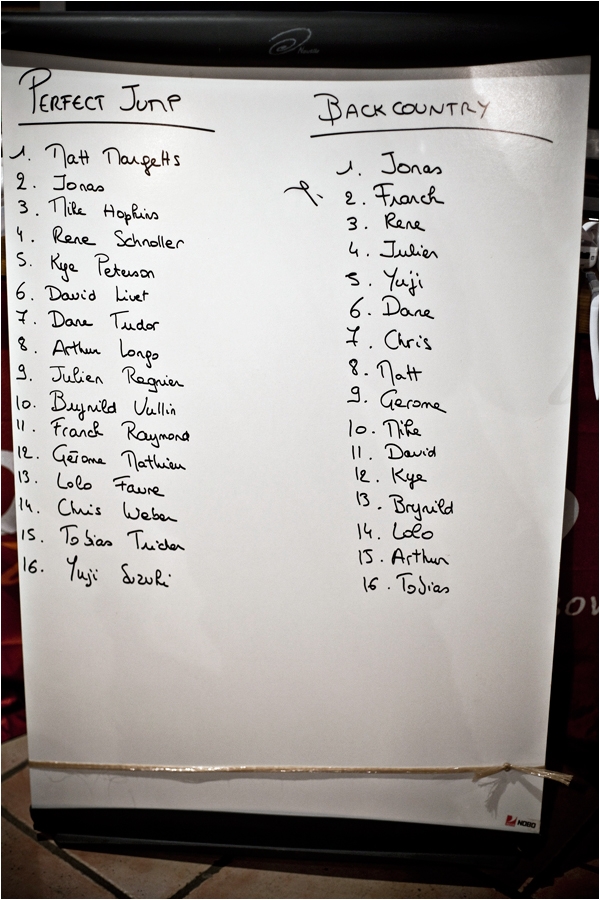 PERFECT JUMP
1. Matt Margetts
2. Jonas
3. Mike Hopkins
4. Rene Schnoller
5. Kye Peterson
6. David Livet
7. Dane Tudor
8. Arthur Longo
9. Julien Regnier
10. Brynild Vullin
11. Franck Raymond
12. Gérome Mathieu
13. Lolo Favre
14. Chris Weber
15. Tobias Tritscher
16. Yuji Suzuki
BACKCOUNTRY
1. Jonas
2. Franck
3. Rene
4. Julien
5. Yuji
6. Dane
7. Chris
8. Matt
9. Gerome
10. Mike
11. David
12. Kye
13. Brynild
14. Lolo
15. Arthur
16. Tobias
NOBO